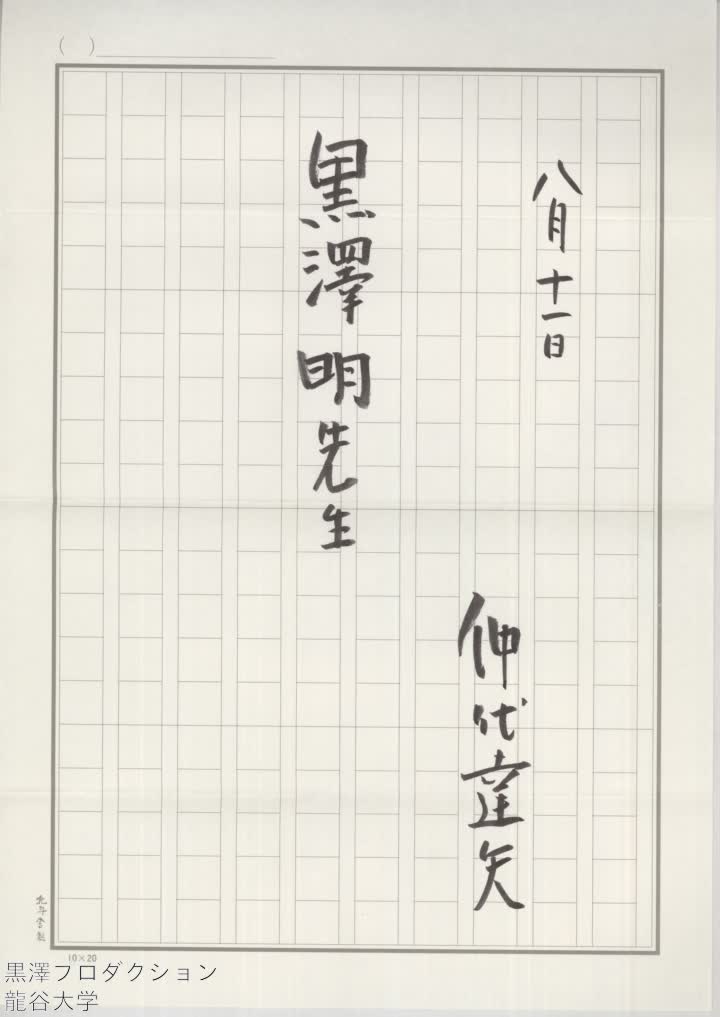 ( )
八月十一日
仲代達矢
黒澤明先生
10×20
黒澤フロダクション
龍谷大学